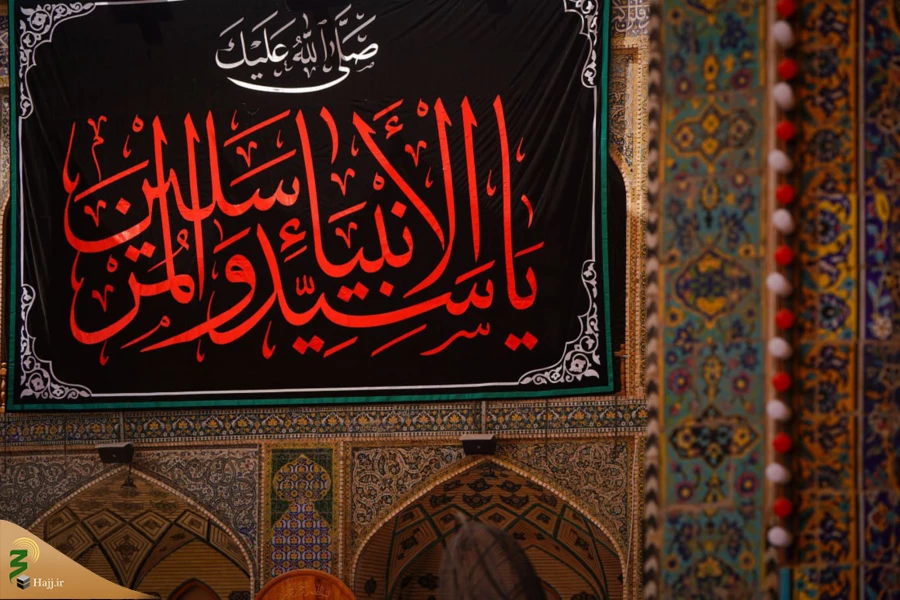 صَلَّى اللهُ عَلَيْكَ
يا سَيِّدَ الأنْبِيَاءِ وَالمُرْسَلين
Hajj.ir